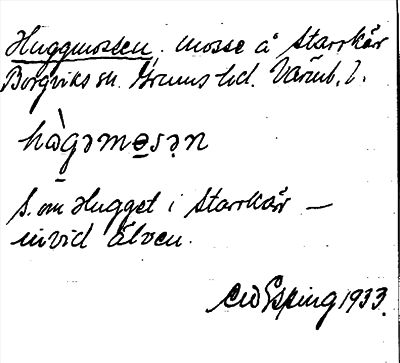 Huggmossen. mosse å Starrkärr
Borgviks sn. Grums hd. Värml. l.
hàgəmosən
S. om Hugget i Starrkärr —
invid Älven.
CW Esping 1933.